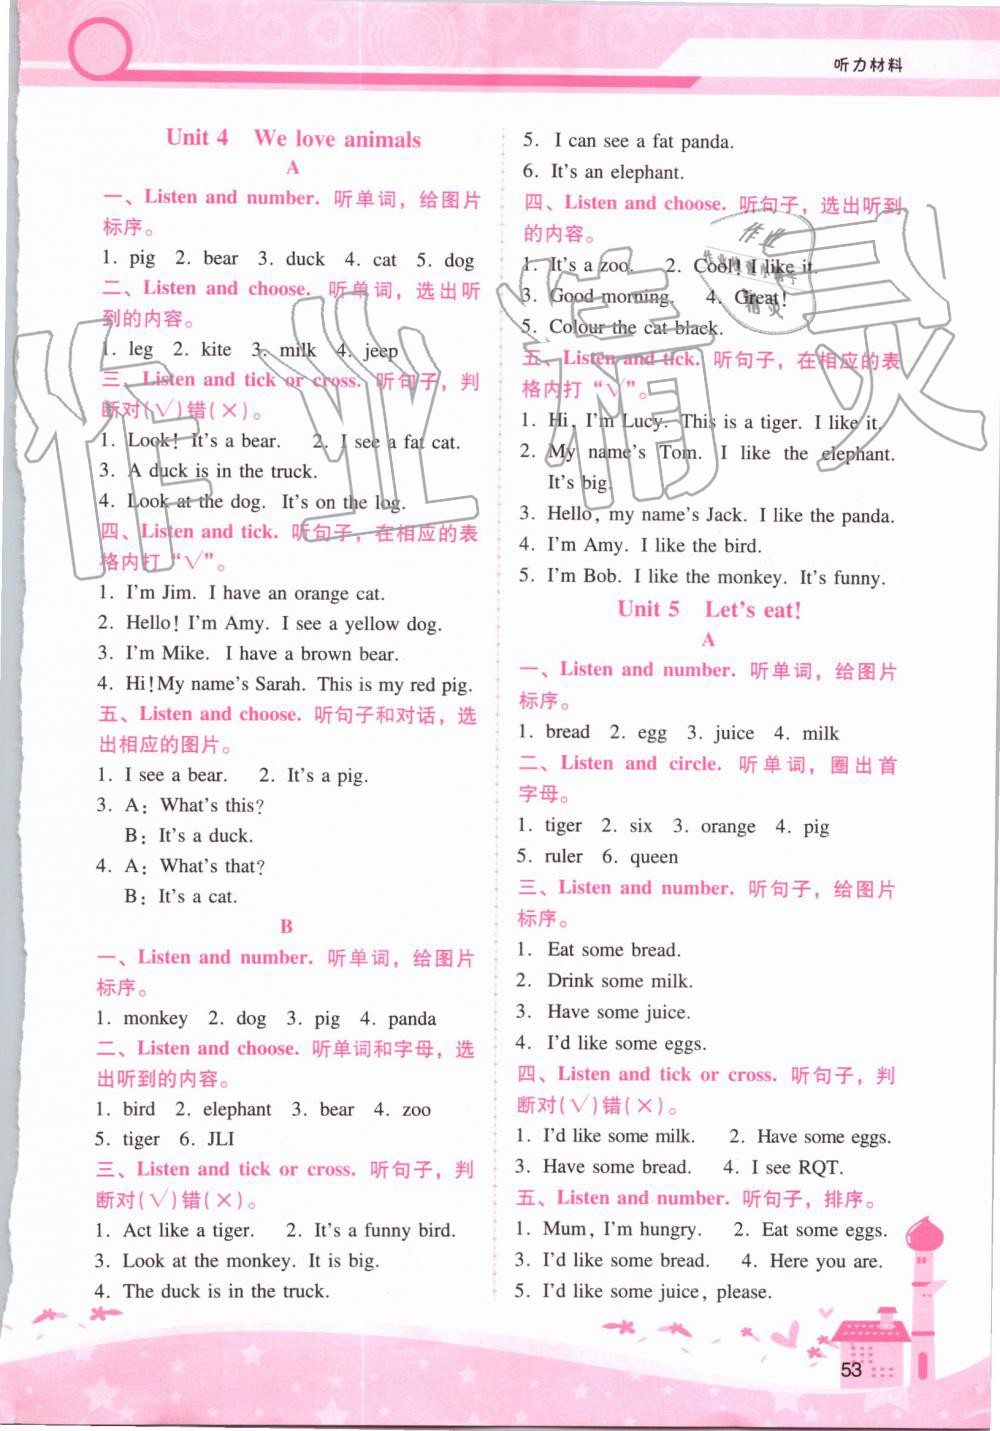 听力材料
Unit 4 We love animals
A
一、Listen and number. 听单词，给图片
标序。
1. pig 2. bear 3. duck 4. cat 5. dog
二、Listen and choose. 听单词，选出听
到的内容。
1. leg 2. kite 3. milk 4. jeep
三、Listen and tick or cross. 听句子，判
断对(√)错(×)。
1. Look! It's a bear. 2. I see a fat cat.
3. A duck is in the truck.
4. Look at the dog. It's on the log.
四、Listen and tick. 听句子，在相应的表
格内打“√”。
1. I'm Jim. I have an orange cat.
2. Hello! I'm Amy. I see a yellow dog.
3. I'm Mike. I have a brown bear.
4. Hi! My name's Sarah. This is my red pig.
五、Listen and choose. 听句子和对话，选
出相应的图片。
1. I see a bear. 2. It's a pig.
3. A: What's this?
B: It's a duck.
4. A: What's that?
B: It's a cat.
B
一、Listen and number. 听单词，给图片
标序。
1. monkey 2. dog 3. pig 4. panda
二、Listen and choose. 听单词和字母，选
出听到的内容。
1. bird 2. elephant 3. bear 4. zoo
5. tiger 6. JLI
三、Listen and tick or cross. 听句子，判
断对(√)错(×)。
1. Act like a tiger. 2. It's a funny bird.
3. Look at the monkey. It is big.
4. The duck is in the truck.
5. I can see a fat panda.
6. It's an elephant.
四、Listen and choose. 听句子，选出听到
的内容。
1. It's a zoo. 2. Cool! I like it.
3. Good morning. 4. Great!
5. Colour the cat black.
五、Listen and tick. 听句子，在相应的表
格内打“√”。
1. Hi, I'm Lucy. This is a tiger. I like it.
2. My name's Tom. I like the elephant.
It's big.
3. Hello, my name's Jack. I like the panda.
4. I'm Amy. I like the bird.
5. I'm Bob. I like the monkey. It's funny.
Unit 5 Let's eat!
A
一、Listen and number. 听单词，给图片
标序。
1. bread 2. egg 3. juice 4. milk
二、Listen and circle. 听单词，圈出首
字母。
1. tiger 2. six 3. orange 4. pig
5. ruler 6. queen
三、Listen and number. 听句子，给图片
标序。
1. Eat some bread.
2. Drink some milk.
3. Have some juice.
4. I'd like some eggs.
四、Listen and tick or cross. 听句子，判
断对(√)错(×)。
1. I'd like some milk. 2. Have some eggs.
3. Have some bread. 4. I see RQT.
五、Listen and number. 听句子，排序。
1. Mum, I'm hungry. 2. Eat some eggs.
3. I'd like some bread. 4. Here you are.
5. I'd like some juice, please.
53
作业精灵
作业
精灵